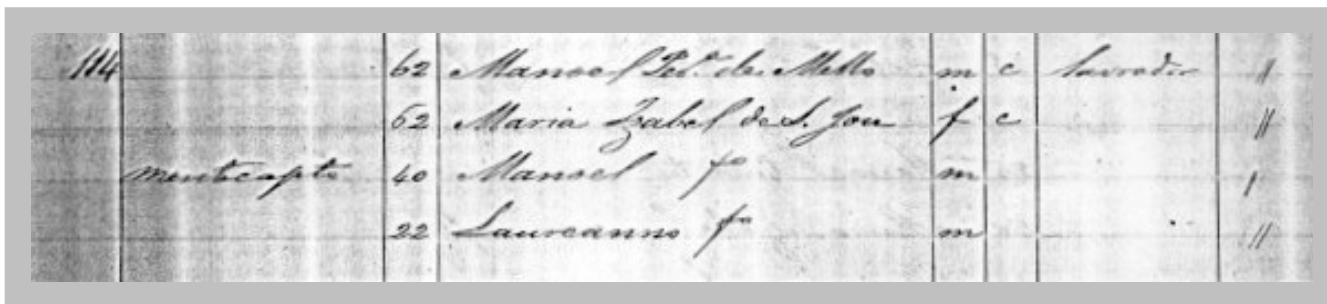 114 62 Manoel Per.ª de Mello m c lavrador "
62 Maria Izabel de S. José f c "
mentecapto 40 Manoel fº m '
22 Laureanno fº m "